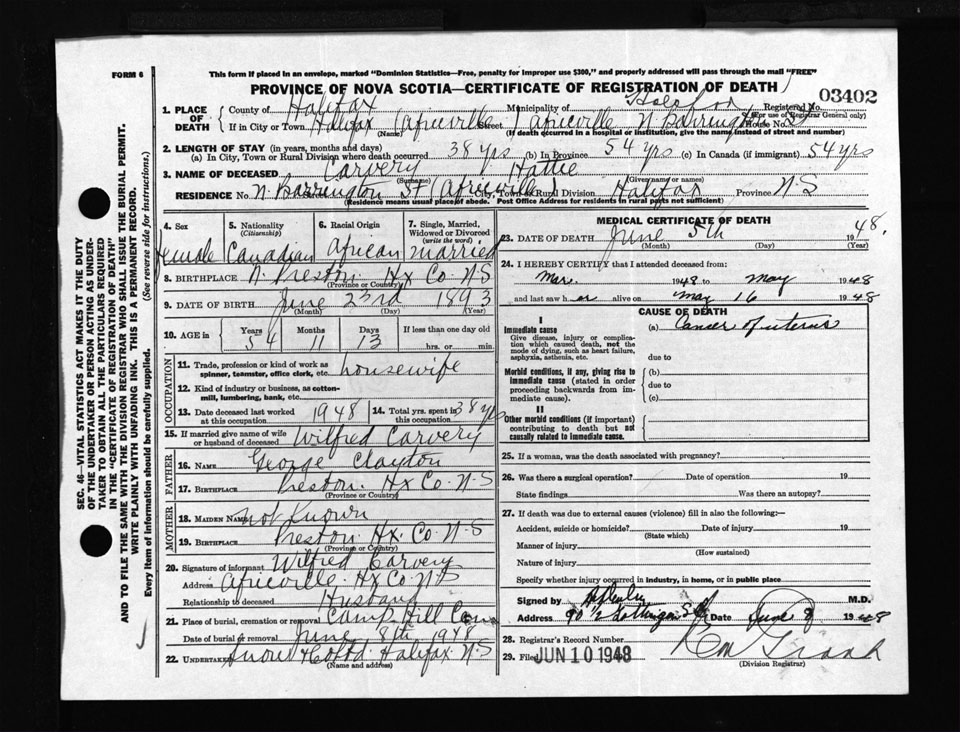 FORM 6
This form if placed in an envelope, marked "Dominion Statistics—Free, penalty for improper use $300," and properly addressed will pass through the mail "FREE"
PROVINCE OF NOVA SCOTIA—CERTIFICATE OF REGISTRATION OF DEATH
03402
1. PLACE OF DEATH { County of Halifax Municipality of Halifax Registered No.
(For use of Registrar General only)
If in City or Town Halifax (Africville) Street Africville N Barrington St House No.
(Name) (If death occurred in a hospital or institution, give the name instead of street and number)
2. LENGTH OF STAY (in years, months and days)
(a) In City, Town or Rural Division where death occurred 38 yrs (b) In Province 54 yrs (c) In Canada (if immigrant) 54 yrs
3. NAME OF DECEASED Carvery Hattie
(Surname) (Given name or names)
RESIDENCE No. N Barrington St (Africville) City, Town or Rural Division Halifax Province N-S
(Residence means usual place of abode. Post Office Address for residents in rural parts not sufficient)
4. Sex Female
5. Nationality (Citizenship) Canadian
6. Racial Origin African
7. Single, Married, Widowed or Divorced (write the word) married
8. BIRTHPLACE N. Preston Hx Co N-S
9. DATE OF BIRTH June 23rd 1893
(Month) (Day) (Year)
10. AGE in { Years 54 Months 11 Days 13 If less than one day old hrs. or min.
OCCUPATION
11. Trade, profession or kind of work as spinner, teamster, office clerk, etc. housewife
12. Kind of industry or business, as cotton-mill, lumbering, bank, etc.
13. Date deceased last worked at this occupation 1948 14. Total yrs. spent in this occupation 38 yrs
15. If married give name of wife or husband of deceased Wilfred Carvery
FATHER
16. NAME George Clayton
17. BIRTHPLACE Preston Hx Co. N-S
(Province or Country)
MOTHER
18. MAIDEN NAME not known
19. BIRTHPLACE Preston Hx. Co. N-S
(Province or Country)
20. Signature of informant Wilfred Carvery
Address Africville Hx Co N-S
Relationship to deceased Husband
21. Place of burial, cremation or removal Camp Hill Cem
Date of burial or removal June 8th 1948
22. UNDERTAKER Snow Halifax N-S
(Name and address)
MEDICAL CERTIFICATE OF DEATH
23. DATE OF DEATH June 5th 1948.
(Month) (Day) (Year)
24. I HEREBY CERTIFY that I attended deceased from:
Mar. 1948 to May 1948
and last saw her alive on May 16 1948
CAUSE OF DEATH
I
Immediate cause (a) Cancer of uterus
Give disease, injury or complication which caused death, not the mode of dying, such as heart failure, asphyxia, asthenia, etc.
due to
Morbid conditions, if any, giving rise to immediate cause (stated in order proceeding backwards from immediate cause).
(b)
due to
(c)
II
Other morbid conditions (if important) contributing to death but not causally related to immediate cause.
25. If a woman, was the death associated with pregnancy?
26. Was there a surgical operation? Date of operation 19
State findings Was there an autopsy?
27. If death was due to external causes (violence) fill in also the following:—
Accident, suicide or homicide? Date of injury 19
(State which)
Manner of injury
(How sustained)
Nature of injury
Specify whether injury occurred in industry, in home, or in public place
Signed by M.D.
Address 90 1/2 Date June 8 1948
28. Registrar's Record Number
29. Filed JUN 10 1948
(Division Registrar)
SEC. 46—VITAL STATISTICS ACT MAKES IT THE DUTY
OF THE UNDERTAKER OR PERSON ACTING AS UNDER-
TAKER TO OBTAIN ALL THE PARTICULARS REQUIRED
IN THE "CERTIFICATE OF REGISTRATION OF DEATH"
AND TO FILE THE SAME WITH THE DIVISION REGISTRAR WHO SHALL ISSUE THE BURIAL PERMIT.
WRITE PLAINLY WITH UNFADING INK. THIS IS A PERMANENT RECORD.
Every item of information should be carefully supplied. (See reverse side for instructions.)